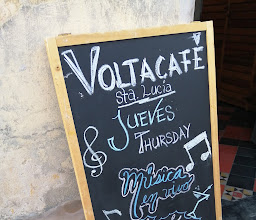 VOLTACAFÉ
Sta. Lucia
JUEVES
THURSDAY
Música
en vivo